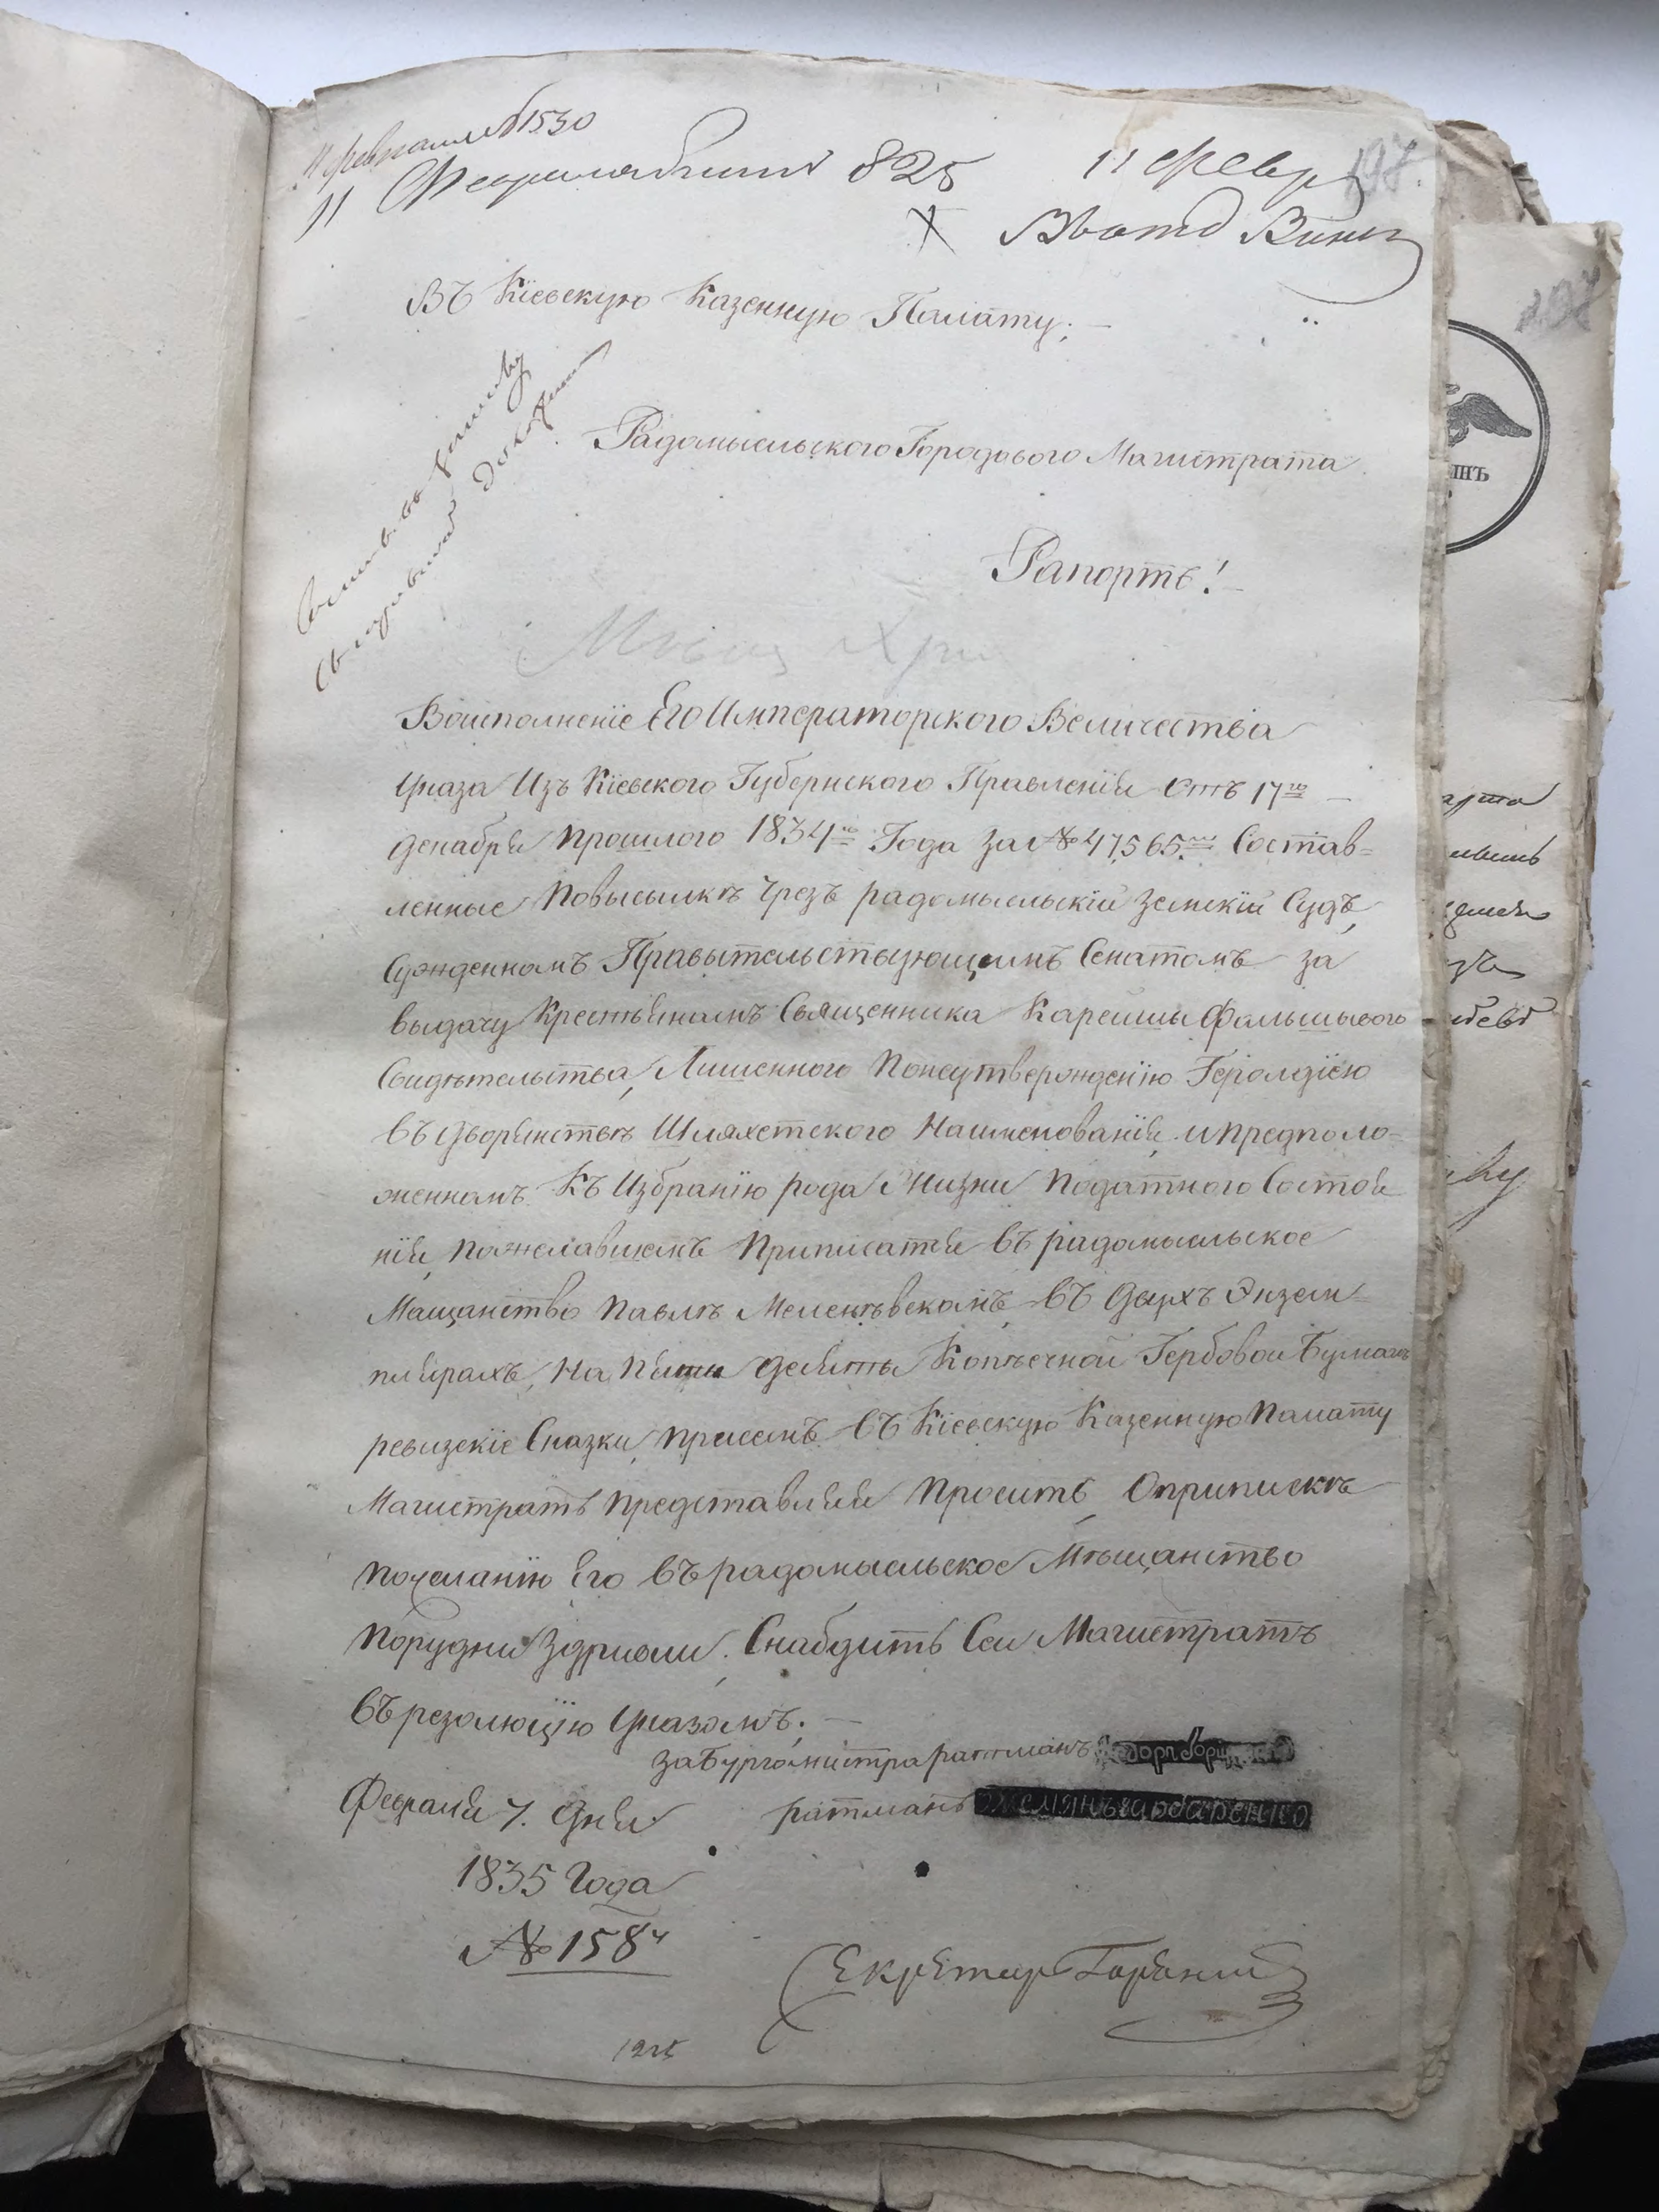 11 февраля 1530
11 825 11 февр 197.
Въ Кіевскую Казенную Палату;
Радомысльского Городового Магистрата
Рапортъ!
Воисполненіе Его Императорского Величества
Указа Изъ Кіевского Губернского Правленія Отъ 17го
декабря прошлого 1834го Года за № 47,565м Состав=
ленные Повысылкѣ Чрезъ радомысльскій Земскій Судъ,
Сужденномъ Правытельствующимъ Сенатомъ за
выдачу Крестьянамъ Священника Кареишы Фальшывого
Свидѣтельства, Лишенного Понеутвержденію Герольдіею
въ дворянствѣ Шляхетского Наименованія и предполо=
женномъ Къ Избранію рода Жизни Податного Состоя
нія, пожелавшемъ Приписатся въ радомысльское
Мащанство Павлѣ Меленѣвскомъ въ двухъ Экзем=
плярахъ, На Пяти десяты Копѣечной Гербовой Бумагѣ
ревизскіе Сказки, присемъ въ Кіевскую Казенную Палату
Магистратъ представляя Проситъ, Оприпискѣ
Пожеланію Его въ радомысльское Мѣщанство
Порудни Здриали, Снабдить Сей Магистратъ
въ резолюцію Указомъ. —
за Бургомистра ратманъ
Февраля 7. дня ратманъ
1835 Года
№ 158ч
Секретар